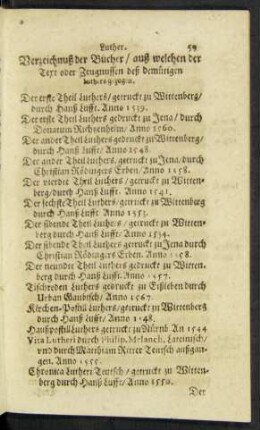 Luther. 59
Verzeichnuß der Bücher / auß welchen der
Text oder Zeugnussen deß demütigen
Luthers gezogen.
Der erste Theil Luthers / getruckt zu Wittenberg /
durch Hanß Lufft. Anno 1539.
Der erste Theil Luthers gedruckt zu Jena / durch
Donatum Richtzenhein / Anno 1560.
Der ander Theil Luthers getruckt zu Wittenberg /
durch Hanß Lufft / Anno 1548.
Der ander Theil Luthers, getruckt zu Jena / durch
Christian Rödingers Erben / Anno 1558.
Der vierdte Theil Luthers / getruckt zu Witten-
berg / durch Hanß Lufft. Anno
Der sechste Theil Luthers, getruckt zu Wittenberg
durch Hanß Lufft. Anno 1553.
Der sibende Theil Luthers getruckt zu Witten-
berg / durch Hanß Lufft / Anno 1554.
Der sibende Theil Luthers getruckt zu Jena durch
Christian Rödingers Erben. Anno
Der neundte Theil Luthers gedruckt zu Witten-
berg durch Hanß Lufft. Anno 1557.
Tischreden Luthers gedruckt zu Eißleben durch
Urban Gaubisch / Anno 1567.
Kirchen-Postill Luthers / getruckt zu Wittenberg
durch Hanß Lufft / Anno
Haußpostill Luthers getruckt zu Nürnb. An 1544
Vita Lutheri durch Philip. Melanch. Lateinisch /
und durch Matthiam Ritter Teutsch außgan-
gen. Anno 1555.
Chronica Lutheri Teutsch / getruckt zu Witten-
berg durch Hanß Lufft / Anno 1550.
Der